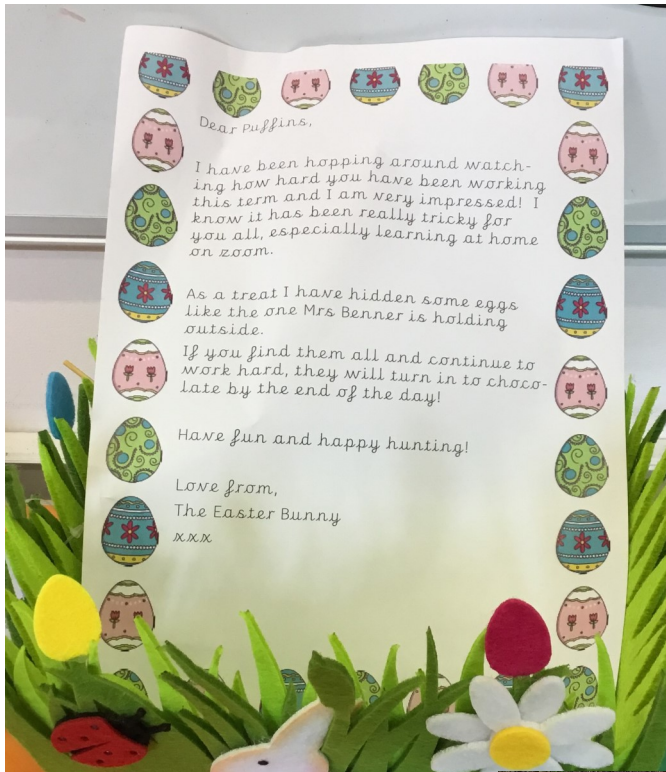 Dear Puffins,
I have been hopping around watch-
ing how hard you have been working
this term and I am very impressed! I
know it has been really tricky for
you all, especially learning at home
on zoom.
As a treat I have hidden some eggs
like the one Mrs Benner is holding
outside.
If you find them all and continue to
work hard, they will turn in to choco-
late by the end of the day!
Have fun and happy hunting!
Love from,
The Easter Bunny
xxx